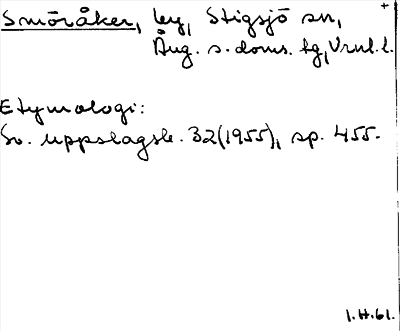 Smöråker, by, Stigsjö sn,
Ång. s. doms. tg, Vrnl. l.
Etymologi:
Sv. uppslagsb. 32 (1955), sp. 455.
1.H.61.